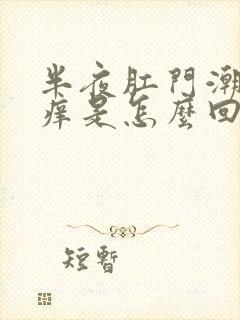 半夜肛門潮
痒是怎麼回
短暫